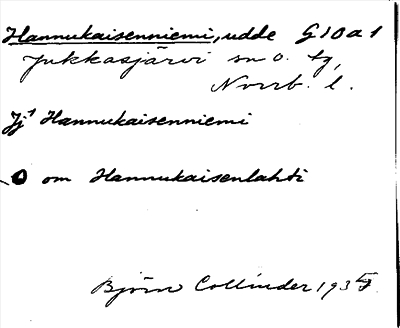 Hannukaisenniemi, udde G10a1
Jukkasjärvi sn o. tg,
Norrb. l.
Jj¹ Hannukaisenniemi
O om Hannukaisenlahti
Björn Collinder 1935